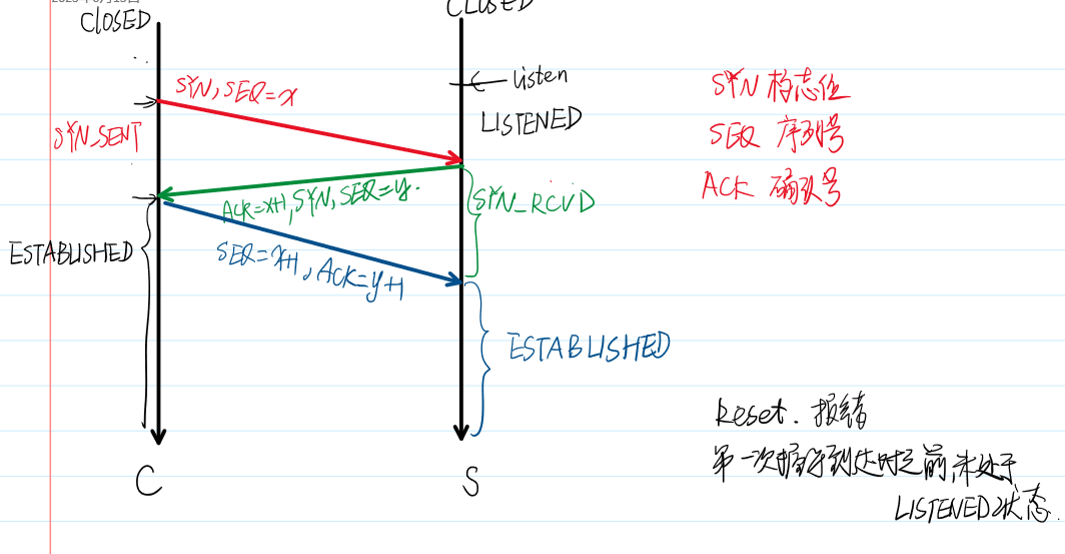 CLOSED
CLOSED
listen
LISTENED
SYN, SEQ=x
SYN_SENT
ACK=x+1, SYN, SEQ=y.
SYN_RCVD
SEQ=x+1, ACK=y+1
ESTABLISHED
ESTABLISHED
C
S
SYN 标志位
SEQ 序列号
ACK 确认号
Reset. 报错
第一次握手到达时之前,未处于
LISTENED状态.